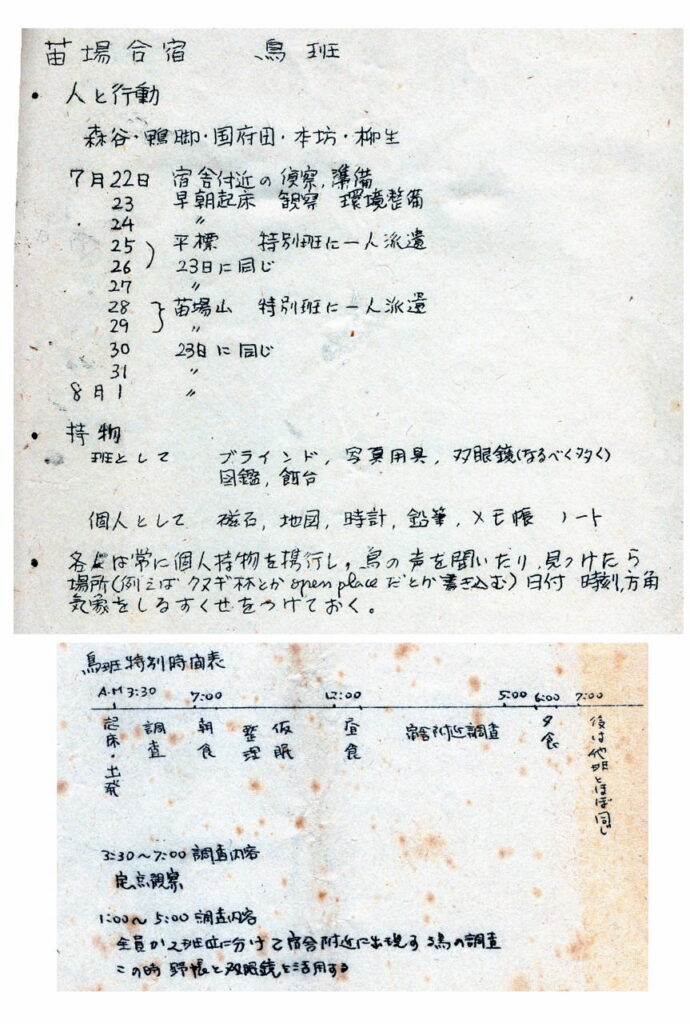 苗場合宿　鳥班
・人と行動
森谷・鴨脚・国府田・本坊・柳生
7月22日　宿舎付近の偵察，準備
23　早朝起床　観察　環境整備
24　〃
25　平標　特別班に一人派遣
26　23日に同じ
27　〃
28　苗場山　特別班に一人派遣
29　〃
30　23日に同じ
31　〃
8月1　〃
・持物
班として　ブラインド，写真用具，双眼鏡(なるべく多く)
図鑑，餌台
個人として　磁石，地図，時計，鉛筆，メモ帳　ノート
・各人は常に個人持物を携行し，鳥の声を聞いたり，見つけたら
場所(例えばクヌギ林とかopen placeだとか書き込む)日付　時刻，方角
気象をしるすくせをつけておく。
鳥班特別時間表
A.M 3:30　7:00　12:00　5:00　6:00　7:00
起床・出発
調査
朝食
整理
仮眠
昼食
宿舎附近調査
夕食
後は他班とほぼ同じ
3:30～7:00 調査内容
定点観察
1:00～5:00 調査内容
全員が2班位に分けて宿舎附近に出現する鳥の調査
この時 野帳と双眼鏡を活用する